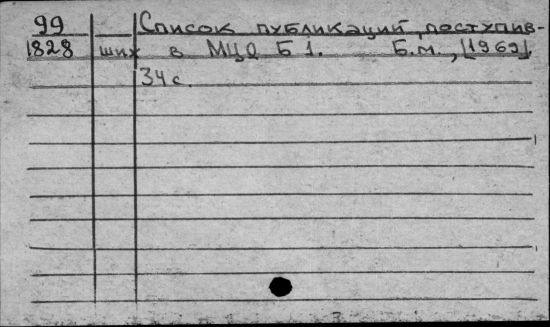 99 Список публикаций, поступив-
1828 ших в МЦД Б 1. Б.м., [1969].
34 с.